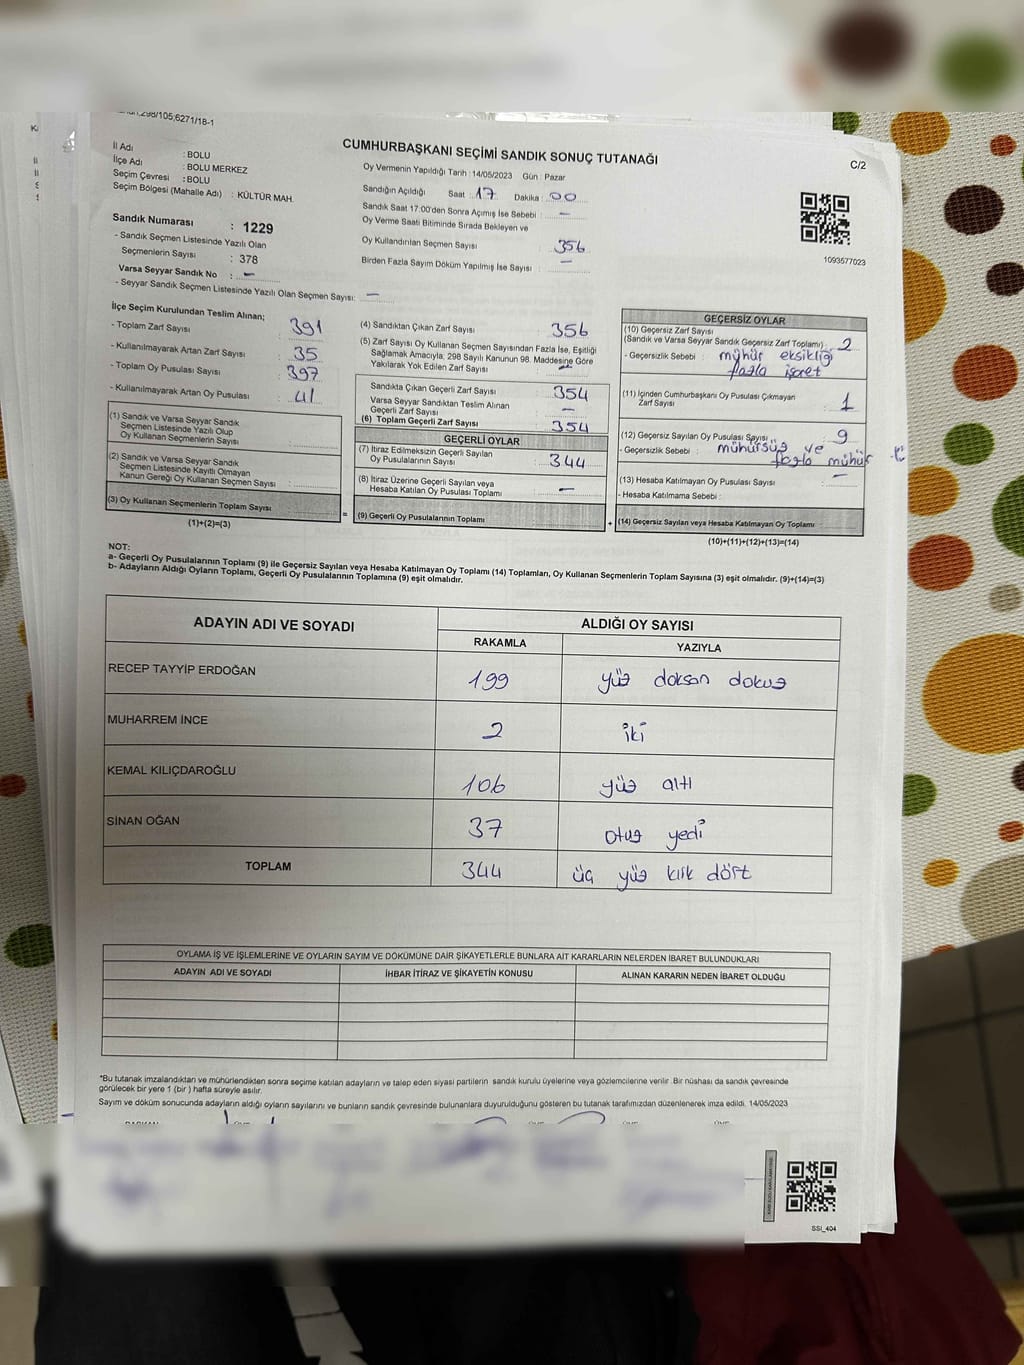 298/105,6271/18-1
CUMHURBAŞKANI SEÇİMİ SANDIK SONUÇ TUTANAĞI
C/2
İl Adı : BOLU
İlçe Adı : BOLU MERKEZ
Seçim Çevresi : BOLU
Seçim Bölgesi (Mahalle Adı) : KÜLTÜR MAH.
Oy Vermenin Yapıldığı Tarih : 14/05/2023 Gün : Pazar
Sandığın Açıldığı Saat : 17 Dakika : 00
Sandık Saat 17:00'den Sonra Açımış İse Sebebi : -
Oy Verme Saati Bitiminde Sırada Bekleyen ve
Oy Kullandırılan Seçmen Sayısı : 356
Birden Fazla Sayım Döküm Yapılmış İse Sayısı : -
1093577023
Sandık Numarası : 1229
- Sandık Seçmen Listesinde Yazılı Olan
Seçmenlerin Sayısı : 378
Varsa Seyyar Sandık No : -
- Seyyar Sandık Seçmen Listesinde Yazılı Olan Seçmen Sayısı: -
İlçe Seçim Kurulundan Teslim Alınan;
- Toplam Zarf Sayısı : 391
- Kullanılmayarak Artan Zarf Sayısı : 35
- Toplam Oy Pusulası Sayısı : 397
- Kullanılmayarak Artan Oy Pusulası : 41
(1) Sandık ve Varsa Seyyar Sandık
Seçmen Listesinde Yazılı Olup
Oy Kullanan Seçmenlerin Sayısı :
(2) Sandık ve Varsa Seyyar Sandık
Seçmen Listesinde Kayıtlı Olmayan
Kanun Gereği Oy Kullanan Seçmen Sayısı :
(3) Oy Kullanan Seçmenlerin Toplam Sayısı
(1)+(2)=(3)
(4) Sandıktan Çıkan Zarf Sayısı : 356
(5) Zarf Sayısı Oy Kullanan Seçmen Sayısından Fazla İse, Eşitliği
Sağlamak Amacıyla, 298 Sayılı Kanunun 98. Maddesine Göre
Yakılarak Yok Edilen Zarf Sayısı :
Sandıkta Çıkan Geçerli Zarf Sayısı : 354
Varsa Seyyar Sandıktan Teslim Alınan
Geçerli Zarf Sayısı : -
(6) Toplam Geçerli Zarf Sayısı : 354
GEÇERLİ OYLAR
(7) İtiraz Edilmeksizin Geçerli Sayılan
Oy Pusulalarının Sayısı : 344
(8) İtiraz Üzerine Geçerli Sayılan veya
Hesaba Katılan Oy Pusulası Toplamı : -
= (9) Geçerli Oy Pusulalarının Toplamı
GEÇERSİZ OYLAR
(10) Geçersiz Zarf Sayısı
(Sandık ve Varsa Seyyar Sandık Geçersiz Zarf Toplamı) : 2
- Geçersizlik Sebebi : mühür eksikliği
fazla işaret
(11) İçinden Cumhurbaşkanı Oy Pusulası Çıkmayan
Zarf Sayısı : 1
(12) Geçersiz Sayılan Oy Pusulası Sayısı : 9
- Geçersizlik Sebebi : mühürsüz ve
fazla mühür
(13) Hesaba Katılmayan Oy Pusulası Sayısı : -
- Hesaba Katılmama Sebebi :
+ (14) Geçersiz Sayılan veya Hesaba Katılmayan Oy Toplamı
(10)+(11)+(12)+(13)=(14)
NOT:
a- Geçerli Oy Pusulalarının Toplamı (9) ile Geçersiz Sayılan veya Hesaba Katılmayan Oy Toplamı (14) Toplamları, Oy Kullanan Seçmenlerin Toplam Sayısına (3) eşit olmalıdır. (9)+(14)=(3)
b- Adayların Aldığı Oyların Toplamı, Geçerli Oy Pusulalarının Toplamına (9) eşit olmalıdır.
ADAYIN ADI VE SOYADI ALDIĞI OY SAYISI
RAKAMLA YAZIYLA
RECEP TAYYİP ERDOĞAN 199 yüz doksan dokuz
MUHARREM İNCE 2 iki
KEMAL KILIÇDAROĞLU 106 yüz altı
SİNAN OĞAN 37 otuz yedi
TOPLAM 344 üç yüz kırk dört
OYLAMA İŞ VE İŞLEMLERİNE VE OYLARIN SAYIM VE DÖKÜMÜNE DAİR ŞİKAYETLERLE BUNLARA AİT KARARLARIN NELERDEN İBARET BULUNDUKLARI
ADAYIN ADI VE SOYADI İHBAR İTİRAZ VE ŞİKAYETİN KONUSU ALINAN KARARIN NEDEN İBARET OLDUĞU
*Bu tutanak imzalandıktan ve mühürlendikten sonra seçime katılan adayların ve talep eden siyasi partilerin sandık kurulu üyelerine veya gözlemcilerine verilir. Bir nüshası da sandık çevresinde
görülecek bir yere 1 (bir ) hafta süreyle asılır.
Sayım ve döküm sonucunda adayların aldığı oyların sayılarını ve bunların sandık çevresinde bulunanlara duyurulduğunu gösteren bu tutanak tarafımızdan düzenlenerek imza edildi. 14/05/2023
SSI_404